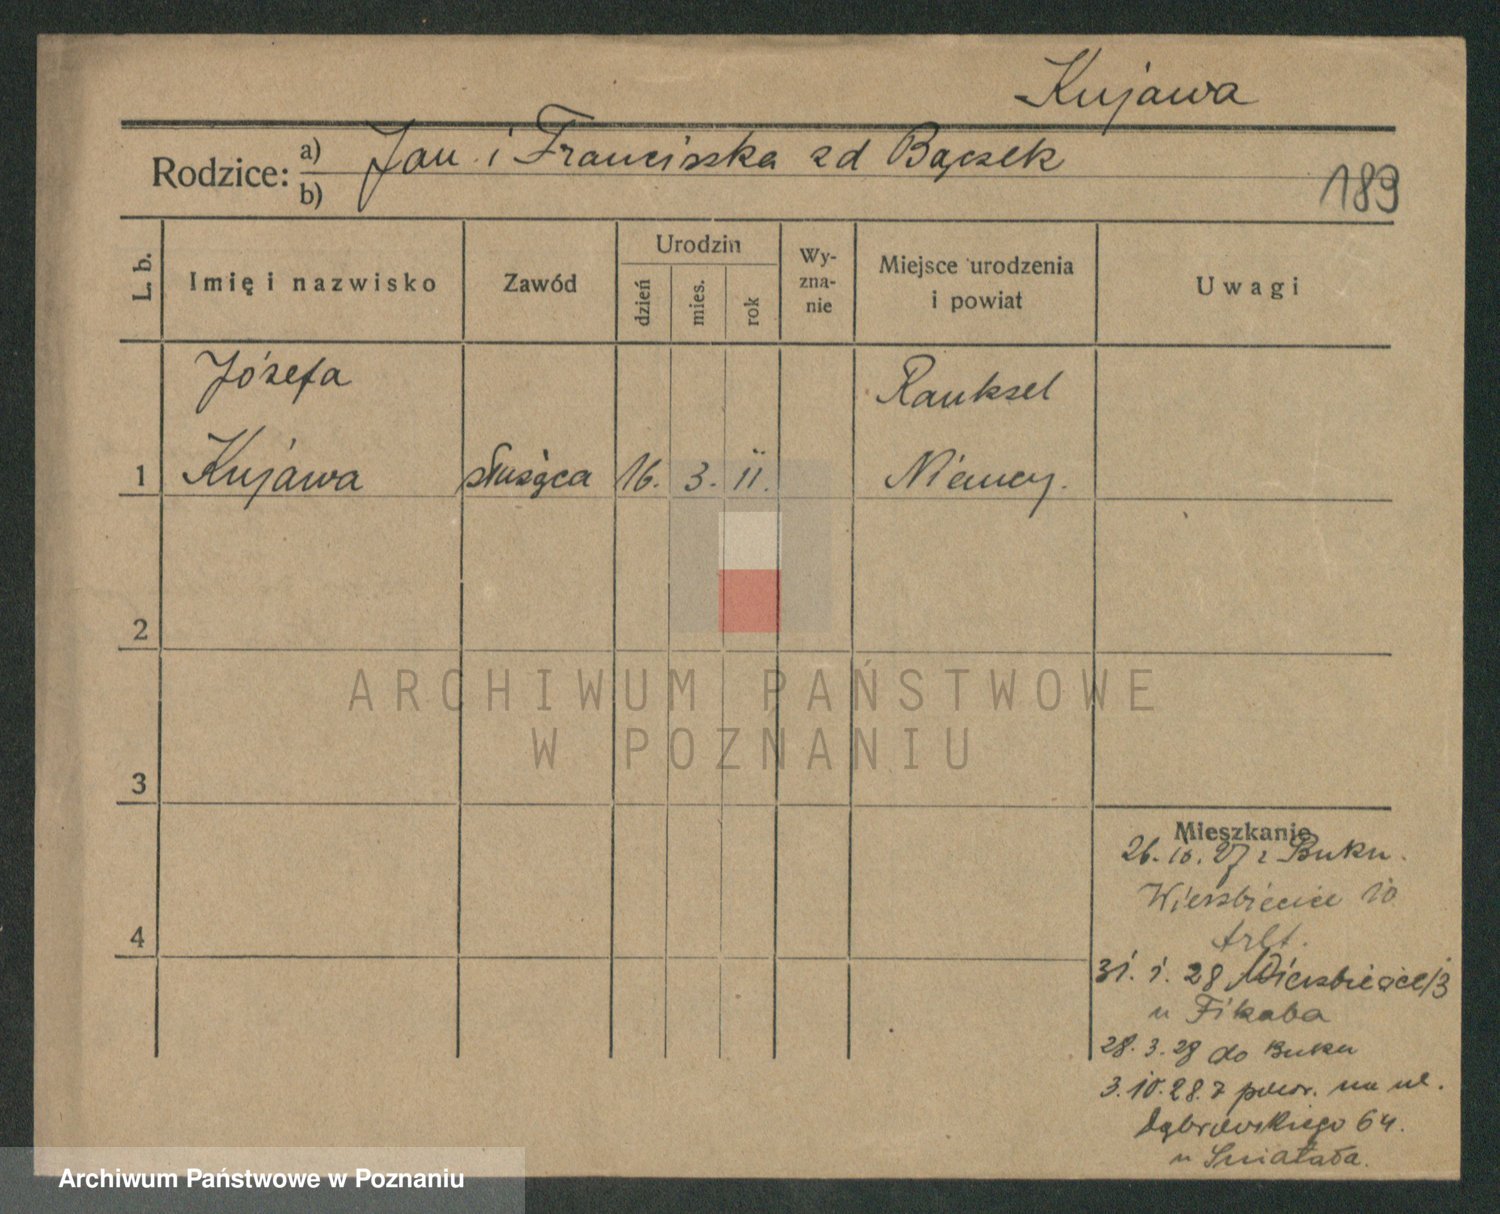 Kujawa
Rodzice: a) Jan i Franciszka zd Bączek
b)
189
L. b.
Imię i nazwisko
Zawód
Urodzin
dzień
mies.
rok
Wy-
zna-
nie
Miejsce urodzenia
i powiat
Uwagi
Józefa
Rauksel
1 Kujawa służąca 16. 3. 11. Niemcy.
2
3
4
Mieszkanie
26. 10. 27 z Buku.
Wierzbięcice 10
31. 1. 28 Wierzbięcice 13
u Fikaba
28. 3. 28 do Buku
3. 10. 28. z powr. na ul.
Dąbrowskiego 64.
u
ARCHIWUM PAŃSTWOWE
W POZNANIU
Archiwum Państwowe w Poznaniu